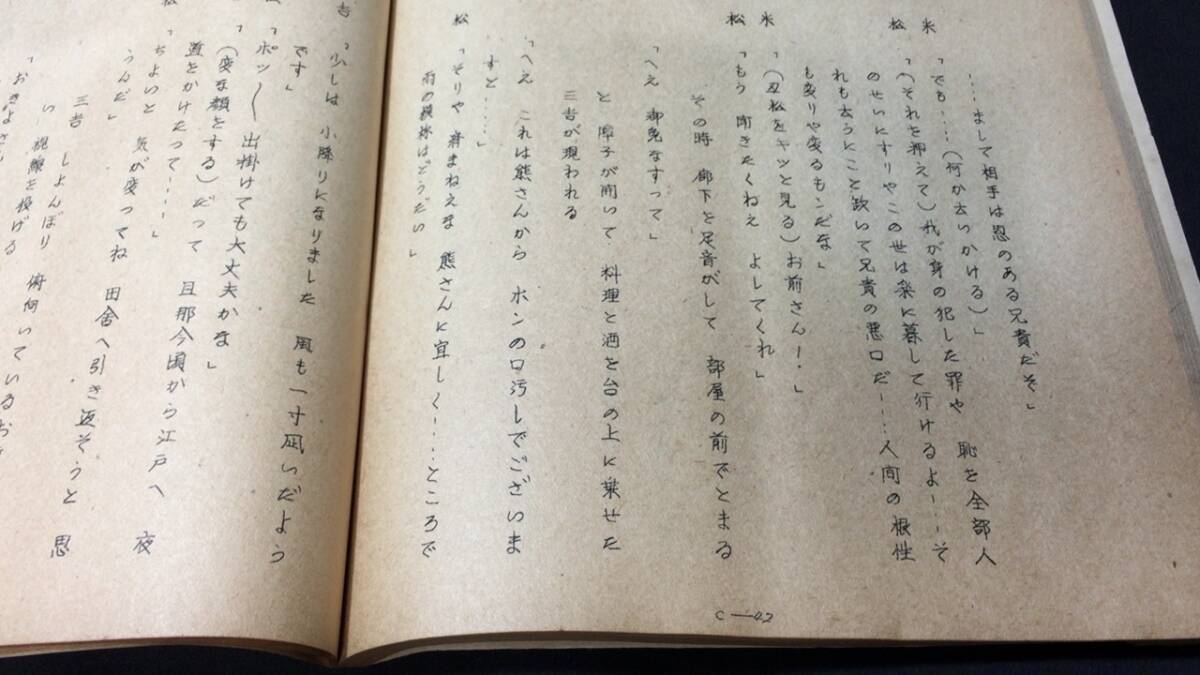 …まして相手は恩のある兄貴だぞ」
米 「でも……(何か云いかける)」
松 「(それを抑えて)我が身の犯した罪や 恥を全部人
のせいにすりやこの世は楽に暮して行けるよ……そ
れも去うにこと欠いて兄貴の悪口だ……人間の根性
も変りや変るもンだな」
米 「(忍松をキツと見る)お前さん!」
松 「もう 聞きたくねえ よしてくれ」
その時 廊下を足音がして 部屋の前でとまる
「へえ 御免なすつて」
と 障子が開いて 料理と酒を台の上に乗せた
三吉が現われる
「へえ これは熊さんから ホンの口汚しでございま
すと……」
松 「そりや 済まねえな 熊さんに宜しく……ところで
雨の模様はどうだい」
C—42
吉 「少しは 小降りになりました 風も一寸凪いだよう
です」
「ポツ〱出掛けても大丈夫かな」
「(変な顔をする)だつて 旦那今頃から江戸へ 夜
道をかけたつて……」
「ちよいと 気が変つてね 田舎へ引き返そうと 思
うんだ」
三吉 しよんぼり 俯向いている
い 視線を投げる
「おきよさん